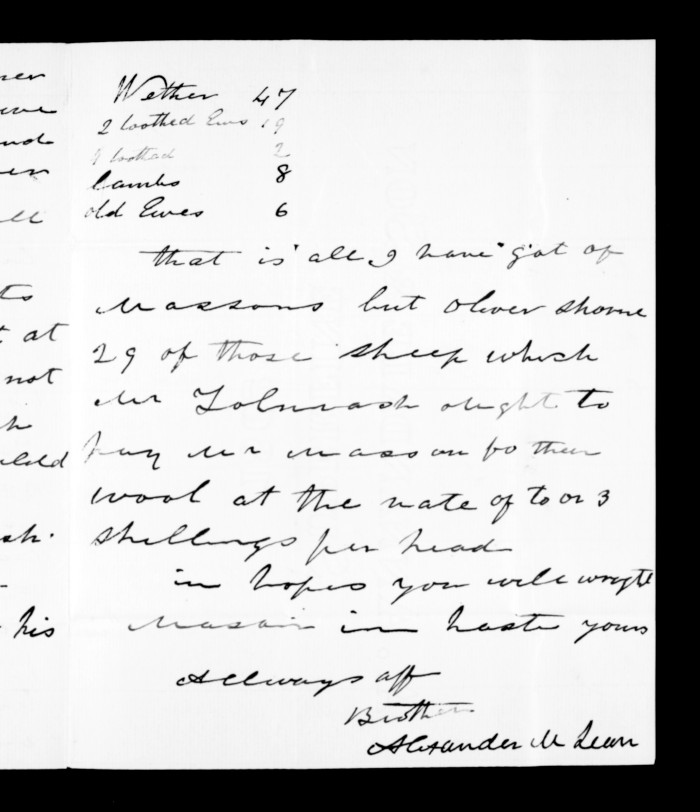 Wether 47
2 toothed Ews 19
toothed 2
lambs 8
old Ewes 6
that is all I have got of
Massons but Oliver shorne
29 of those sheep which
Mr Tolmash ought to
pay Mr Masson fo their
wool at the rate of to or 3
shellings per head
in hopes you will wryte
Masson in haste yours
Allways aff
Brother
Alexander McLean
at
not
his